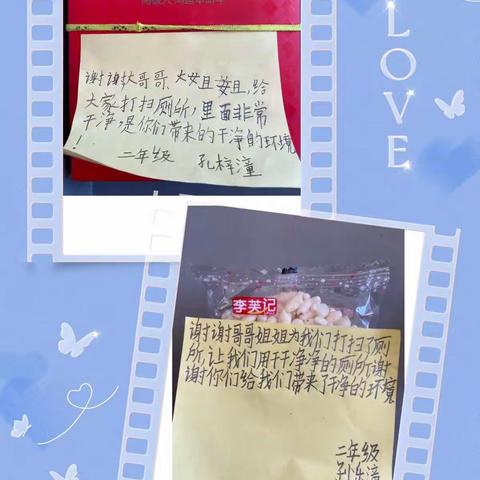 LOVE
谢谢大哥哥、大姐姐,给
大家打扫厕所,里面非常
干净,是你们带来的干净的环境
!
二年级 孔梓潼
李英记
谢谢哥哥姐姐为我们打扫了厕
所,让我们用干干净净的厕所谢
谢你们给我们带来了干净的环境
二年级